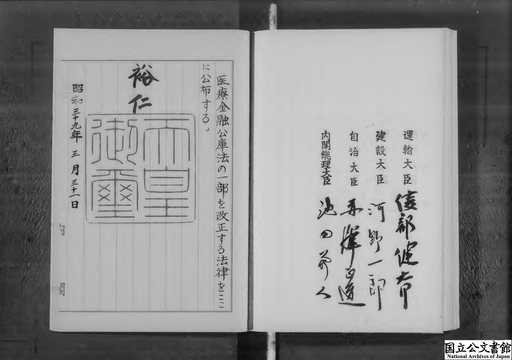 医療金融公庫法の一部を改正する法律をここ
に公布する。
裕仁
天皇
御璽
昭和三十九年三月三十一日
運輸大臣 綾部健太郎
建設大臣 河野一郎
自治大臣 赤澤正道
内閣総理大臣 池田勇人
国立公文書館
National Archives of Japan